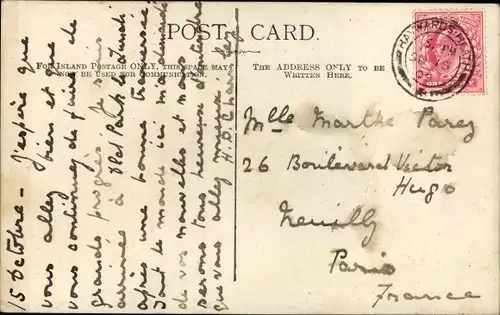 POST CARD.
FOR INLAND POSTAGE ONLY, THIS SPACE MAY
NOW BE USED FOR COMMUNICATION.
THE ADDRESS ONLY TO BE
WRITTEN HERE.
HAYWARDS HEATH
15 Octobre – J'espère que
vous allez bien et que
vous continuez de faire
grands progrès. Je suis
arrivée à Park Lundi
après une bonne traversée.
Tout le monde ici m'a demandé
de vos nouvelles et nous
serons tous heureux d'entendre
que vous allez mieux
H. D.
Mlle Marthe Parez
26 Boulevard Victor
Hugo
Neuilly
Paris
France